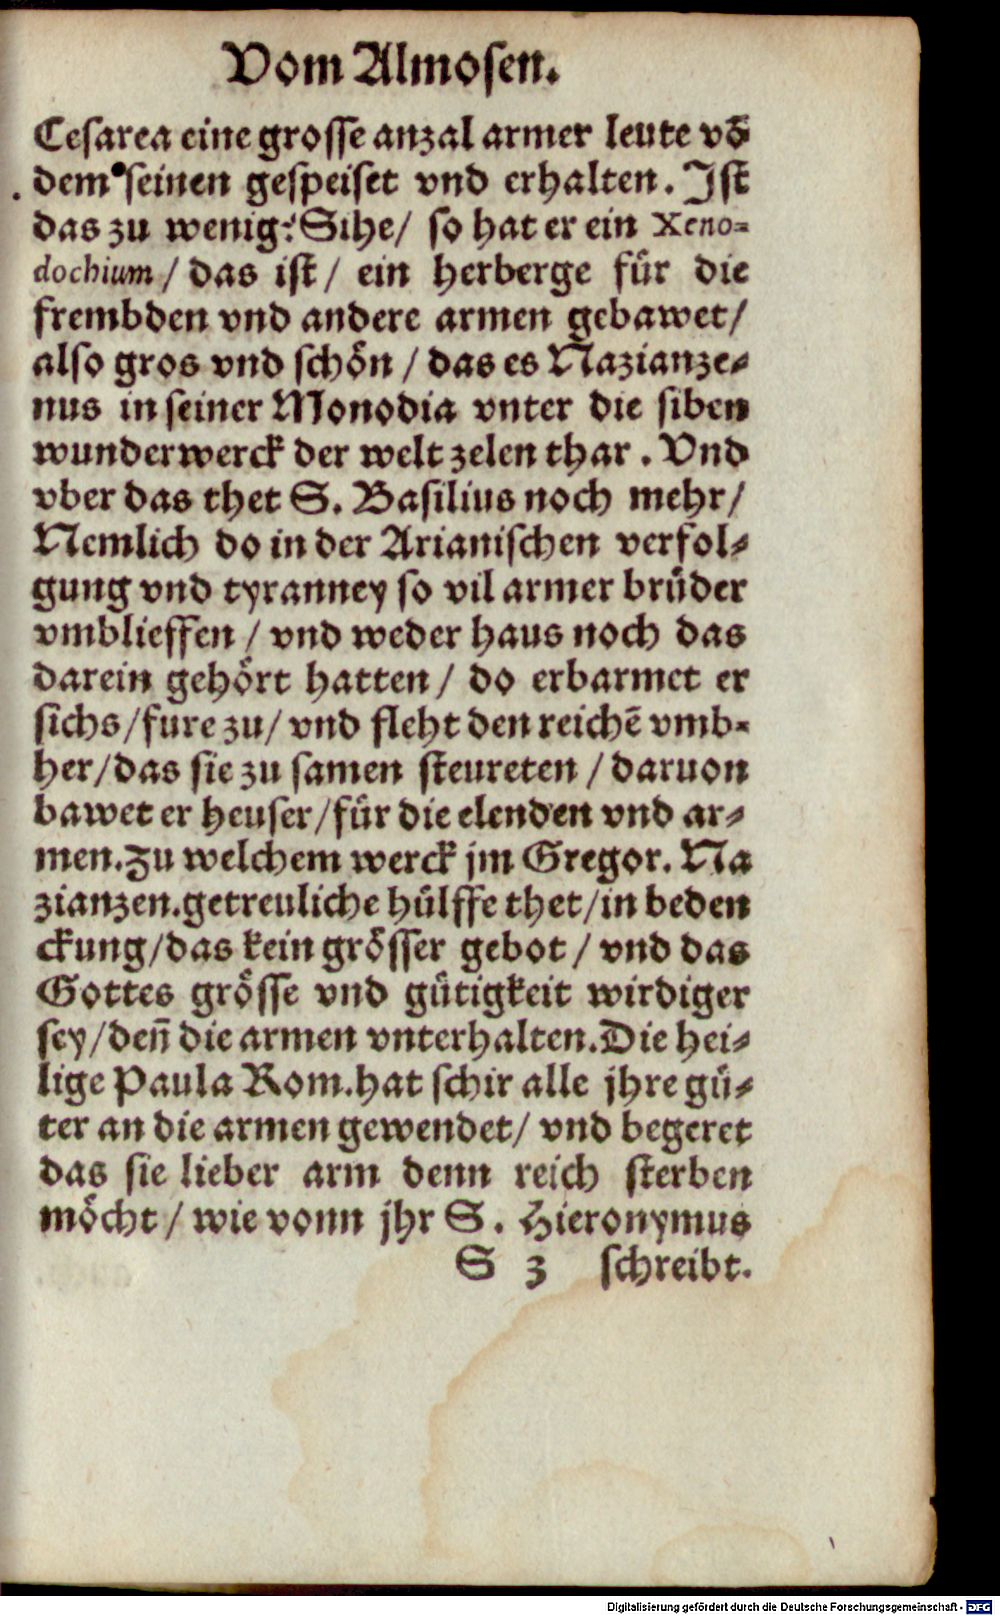 Vom Almosen.
Cesarea eine grosse anzal armer leute võ
dem seinen gespeiset vnd erhalten. Ist
das zu wenig? Sihe/ so hat er ein Xeno=
dochium/ das ist/ ein herberge für die
frembden vnd andere armen gebawet/
also gros vnd schön/ das es Nazianze=
nus in seiner Monodia vnter die siben
wunderwerck der welt zelen thar. Vnd
vber das thet S. Basilius noch mehr/
Nemlich do in der Arianischen verfol=
gung vnd tyranney so vil armer brüder
vmblieffen/ vnd weder haus noch das
darein gehört hatten/ do erbarmet er
sichs/ fure zu/ vnd fleht den reichẽ vmb=
her/ das sie zu samen steureten/ daruon
bawet er heuser/ für die elenden vnd ar=
men. Zu welchem werck jm Gregor. Na
zianzen. getreuliche hülffe thet/ in beden
ckung/ das kein grösser gebot/ vnd das
Gottes grösse vnd gütigkeit wirdiger
sey/ deñ die armen vnterhalten. Die hei=
lige Paula Rom. hat schir alle jhre gü=
ter an die armen gewendet/ vnd begeret
das sie lieber arm denn reich sterben
möcht/ wie vonn jhr S. Hieronymus
S 3 schreibt.
Digitalisierung gefördert durch die Deutsche Forschungsgemeinschaft - DFG